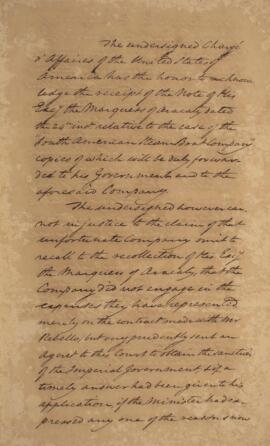 The undersigned Chargé
d'Affaires of the United States of
America has the honor to acknow
ledge the receipt of the Note of His
Exc.y the Marquess of Aracaty dated
the 25.th inst. relative to the case of the
South American Steam Boat Company
copies of which will be duly forwar
ded to his Government and to the
aforesaid Company.
The undersigned however can
not in justice to the claim of that
unfortunate company omit to
recall to the recollection of His Exc.y
the Marquess of Aracaty, that the
Company did not engage in the
expenses they have represented
merely on the contract made with Mr
Rebello, but very prudently sent an
Agent to this Court to obtain the sanction
of the Imperial Government & if a
timely answer had been given to his
application, if the Minister had ex
pressed any one of the reasons now